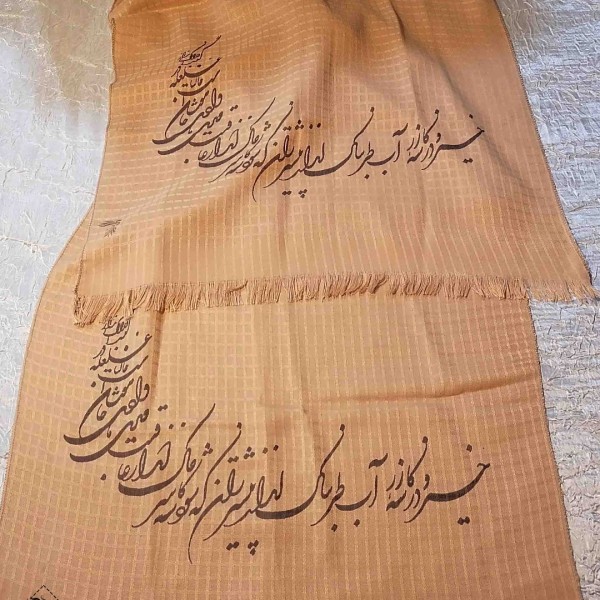 خیز و در کاسه زر آب طربناک انداز
پیشتر زان که شود کاسه سر خاک انداز
عاقبت منزل ما وادی خاموشان است
حالیا غلغله در گنبد افلاک انداز
خیز و در کاسه زر آب طربناک انداز
پیشتر زان که شود کاسه سر خاک انداز
عاقبت منزل ما وادی خاموشان است
حالیا غلغله در گنبد افلاک انداز